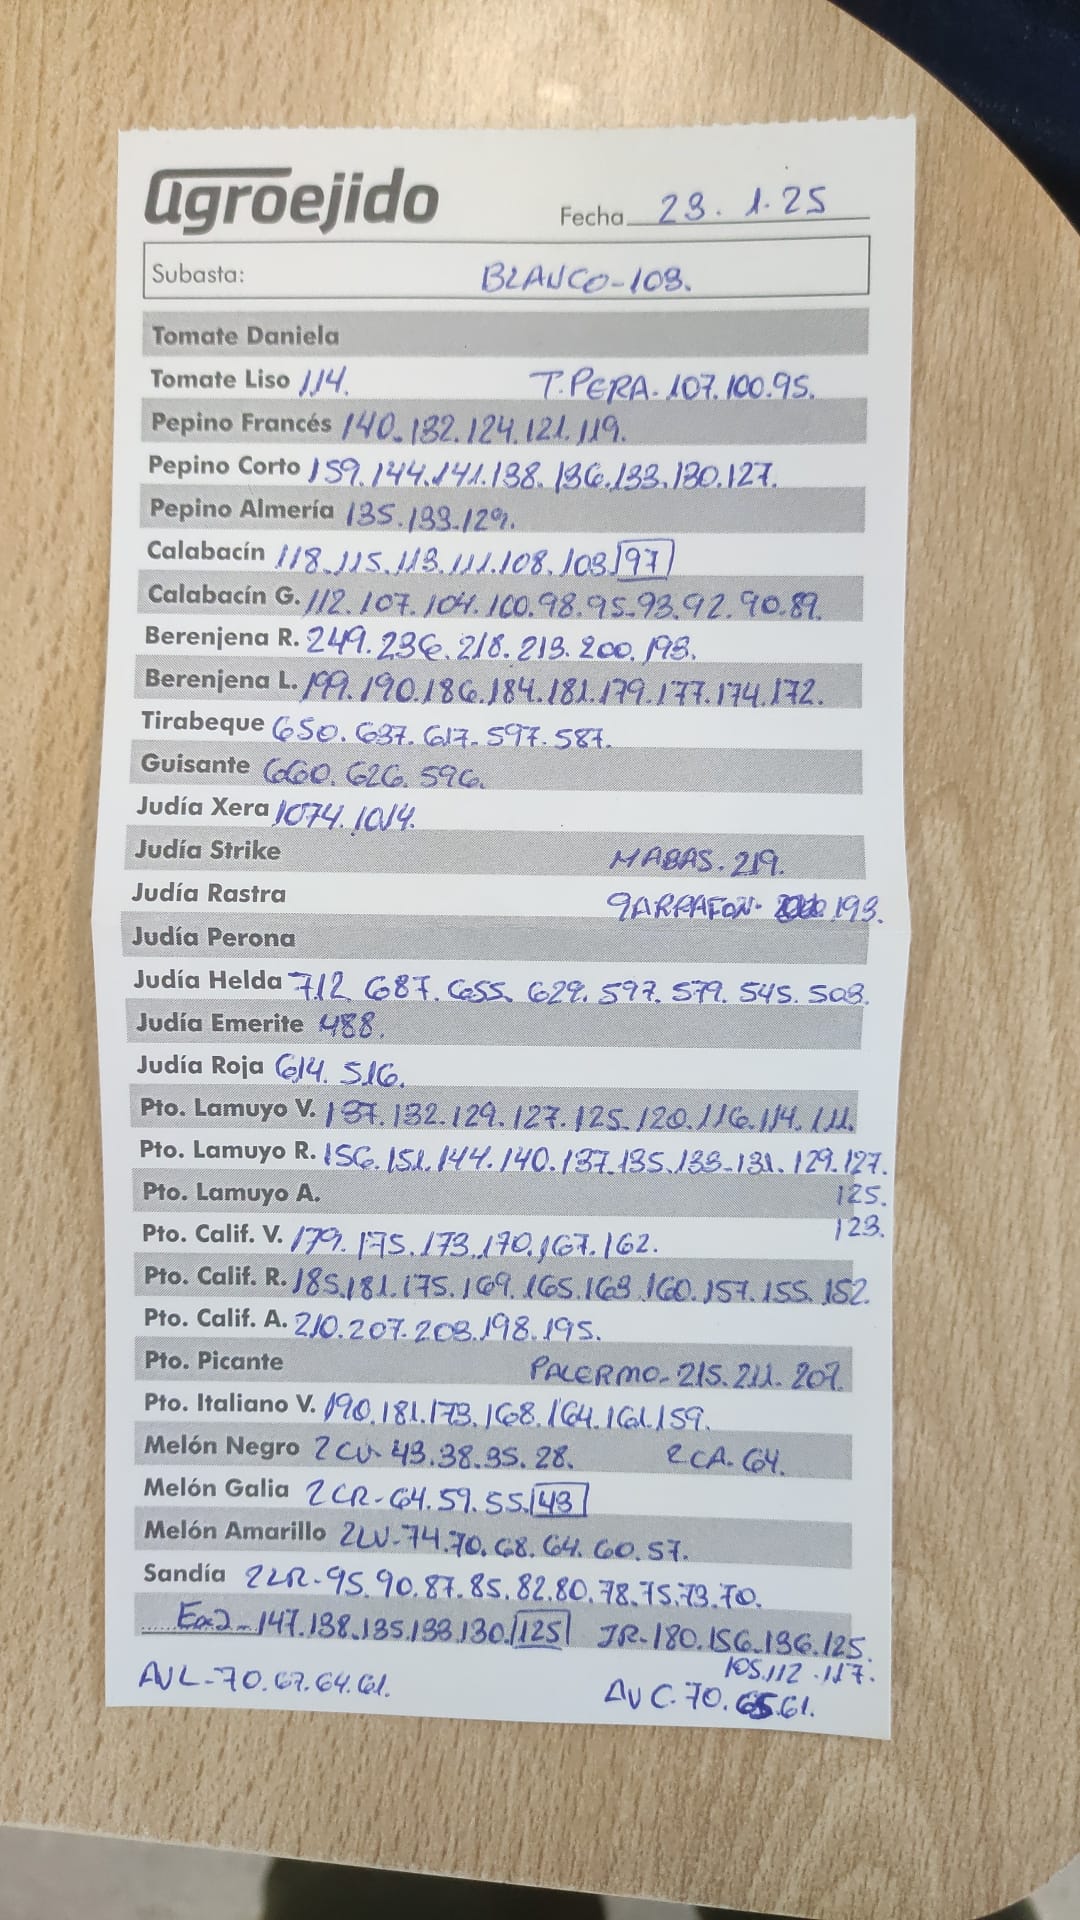 agroejido
Fecha 23.1.25
Subasta: BLANCO-103.
Tomate Daniela
Tomate Liso 114. T.PERA-107.100.95.
Pepino Francés 140.132.124.121.119.
Pepino Corto 159.144.141.138.136.133.130.127.
Pepino Almería 135.133.129.
Calabacín 118.115.113.111.108.103.97
Calabacín G. 112.107.104.100.98.95.93.92.90.89.
Berenjena R. 249.236.218.213.200.193.
Berenjena L. 199.190.186.184.181.179.177.174.172.
Tirabeque 650.637.617.597.587.
Guisante 660.626.596.
Judía Xera 1074.1014.
Judía Strike HABAS.219.
Judía Rastra GARRAFON- 193.
Judía Perona
Judía Helda 712 687.655.629.597.579.545.503.
Judía Emerite 488.
Judía Roja 614.516.
Pto. Lamuyo V. 137.132.129.127.125.120.116.114.111.
Pto. Lamuyo R. 156.151.144.140.137.135.133-131.129.127.
Pto. Lamuyo A. 125.
123.
Pto. Calif. V. 179.175.173.170.167.162.
Pto. Calif. R. 185.181.175.169.165.163.160.157.155.152.
Pto. Calif. A. 210.207.203.198.195.
Pto. Picante PALERMO-215.211.207.
Pto. Italiano V. 190.181.173.168.164.161.159.
Melón Negro 2CU-43.38.35.28. 2CA.64.
Melón Galia 2CR-64.59.55.43
Melón Amarillo 2LV-74.70.68.64.60.57.
Sandía 2LR-95.90.87.85.82.80.78.75.73.70.
147.138.135.133.130.125 JR-180.156.136.125.
105.112.117.
AVL-70.67.64.61. AVC.70.65.61.